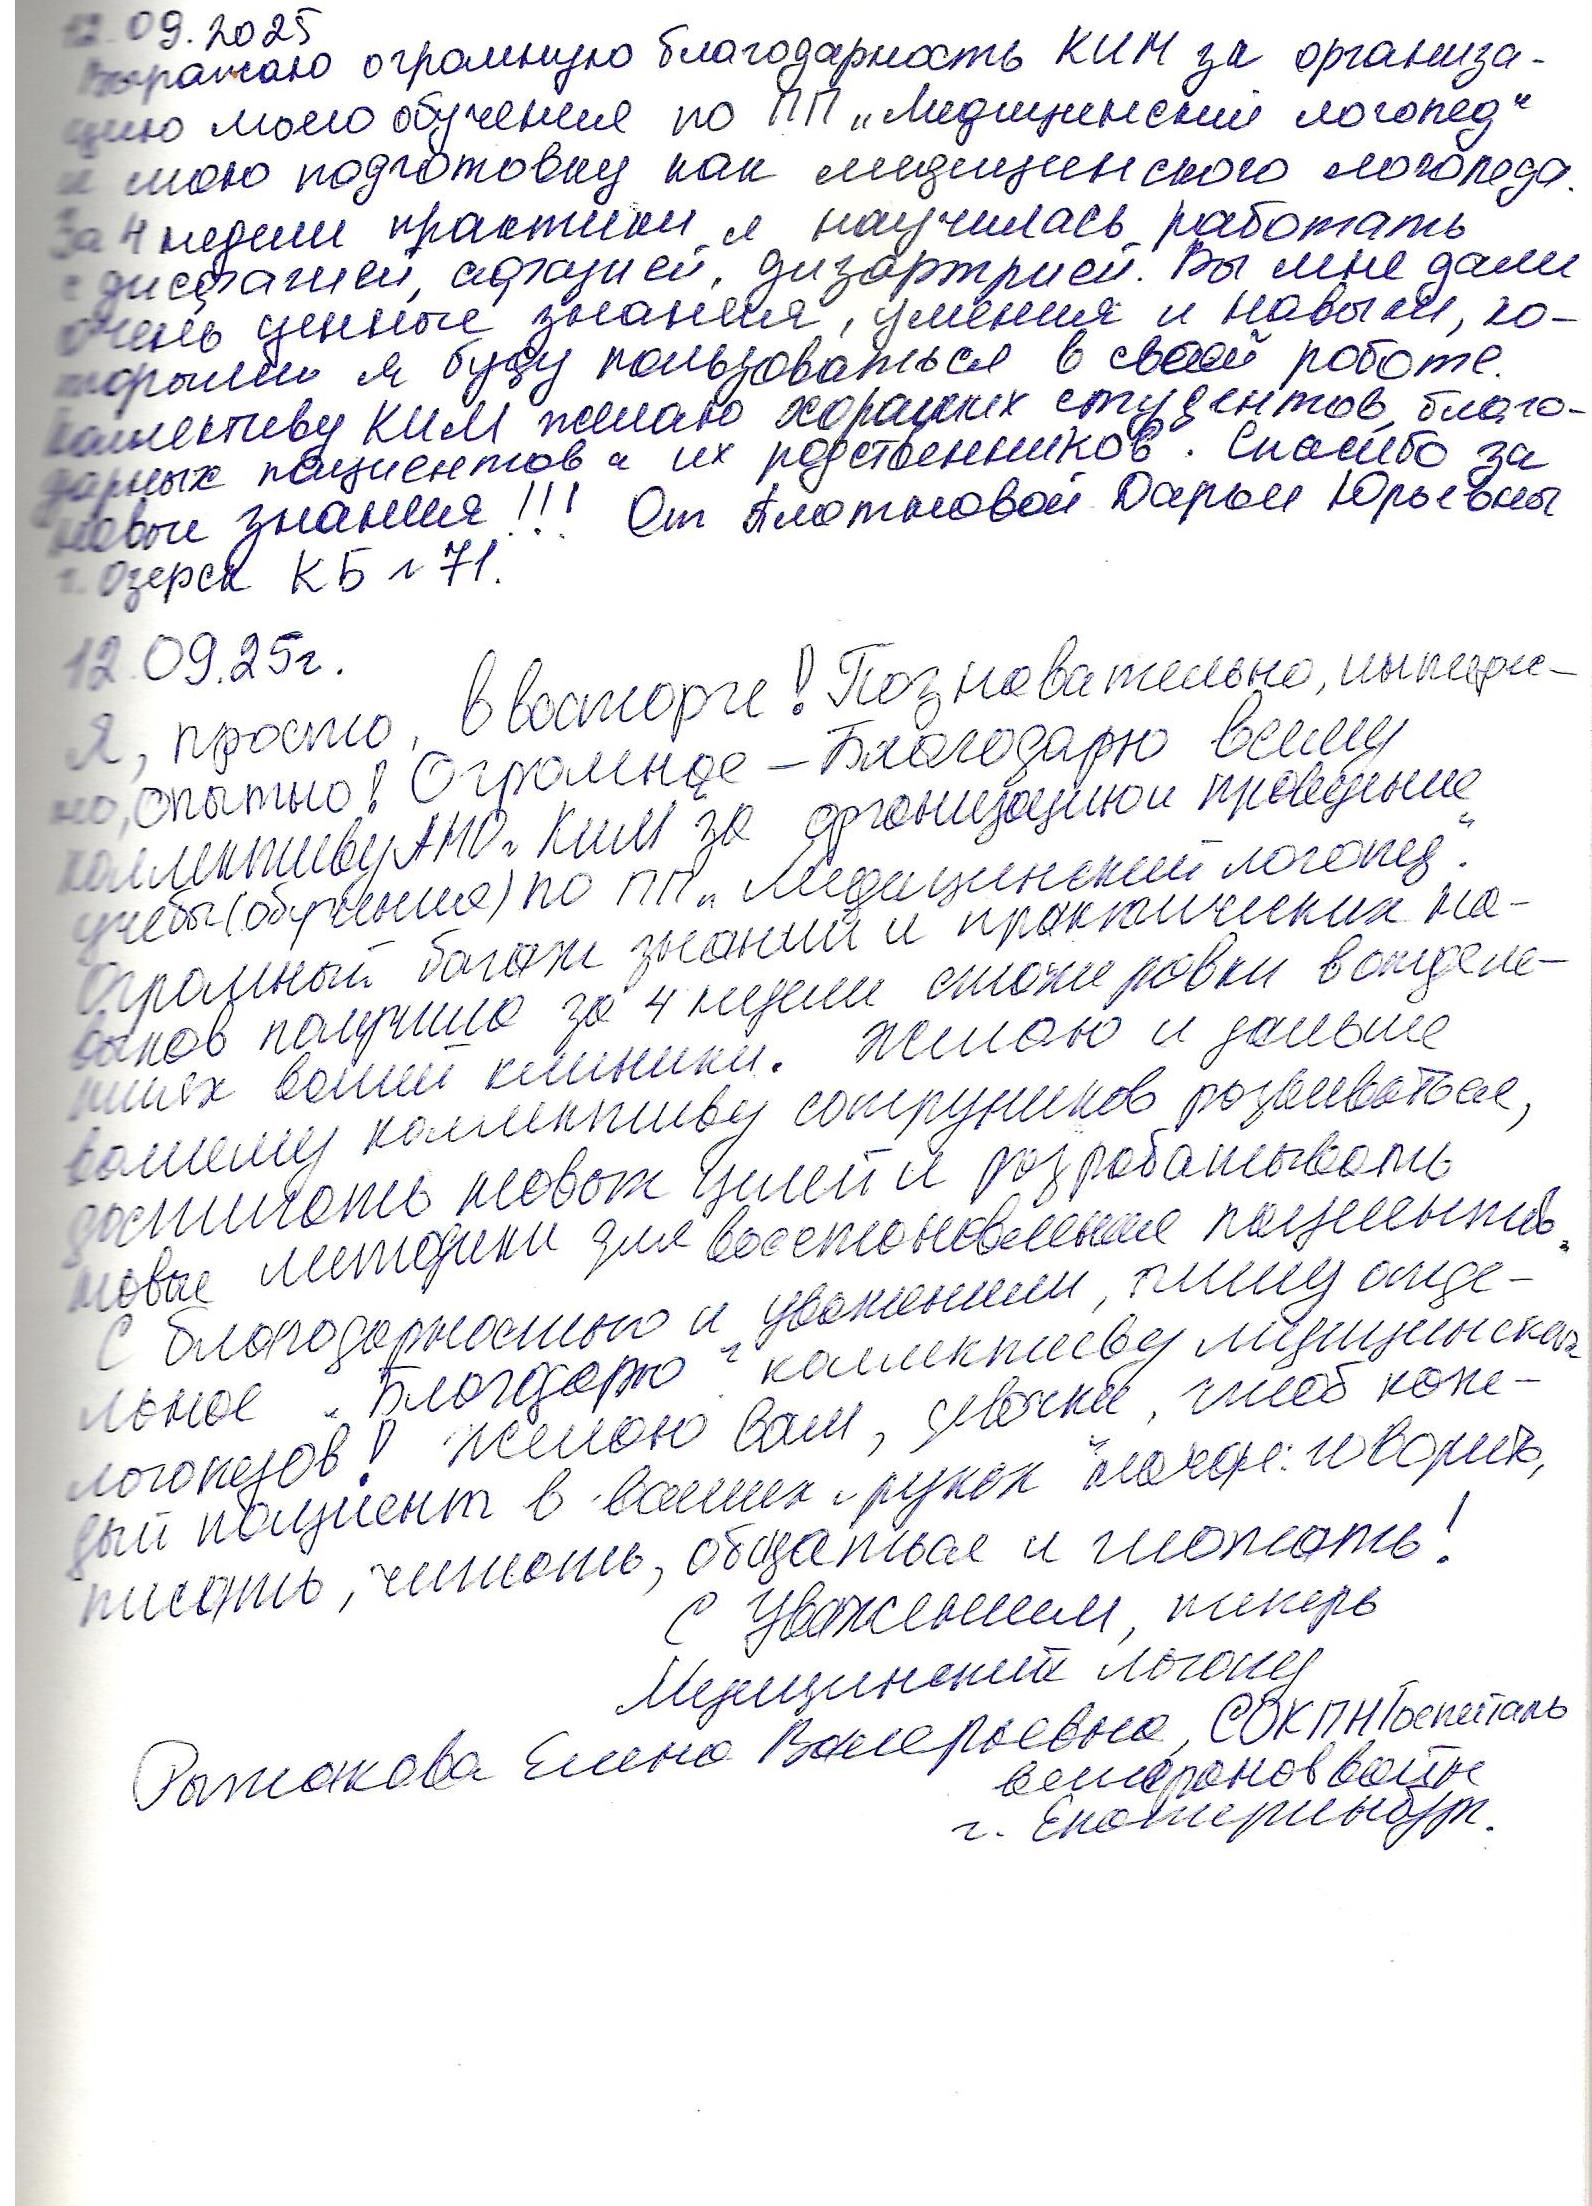 12.09.2025
Выражаю огромную благодарность КИМ за организа-
цию моего обучения по ПП „Медицинский логопед"
и мою подготовку как медицинского логопеда.
За 4 недели практики я научилась работать
с дисфагией, афазией, дизартрией. Вы мне дали
очень ценные знания, умения и навыки, ко-
торыми я буду пользоваться в своей работе.
Коллективу КИМ желаю хороших студентов, благо-
дарных пациентов и их родственников. Спасибо за
новые знания!!! От Плотновой Дарьи Юрьевны
г. Озерск КБ №71.
12.09.25г.
Я, просто, в восторге! Познавательно, интерес-
но, опытно! Огромное – Благодарю всему
коллективу АНО „КИМ за организацию и проведение
учебы (обучения) по ПП „Медицинский логопед".
Огромный багаж знаний и практических на-
выков получила за 4 недели стажировки в отделе-
ниях вашей клиники. Желаю и дальше
вашему коллективу сотрудников развиваться,
достигать новых целей и разрабатывать
новые методики для восстановления пациентов.
С благодарностью и уважением, пишу отде-
льное „Благодарю" коллективу медицинских
логопедов! Желаю вам, девочки, чтоб каж-
дый пациент в ваших руках начал: говорить,
писать, читать, общаться и глотать!
С Уважением, теперь
Медицинский логопед
Рыжакова Елена Валерьевна, СОКПН Госпиталь
ветеранов войн
г. Екатеринбург.